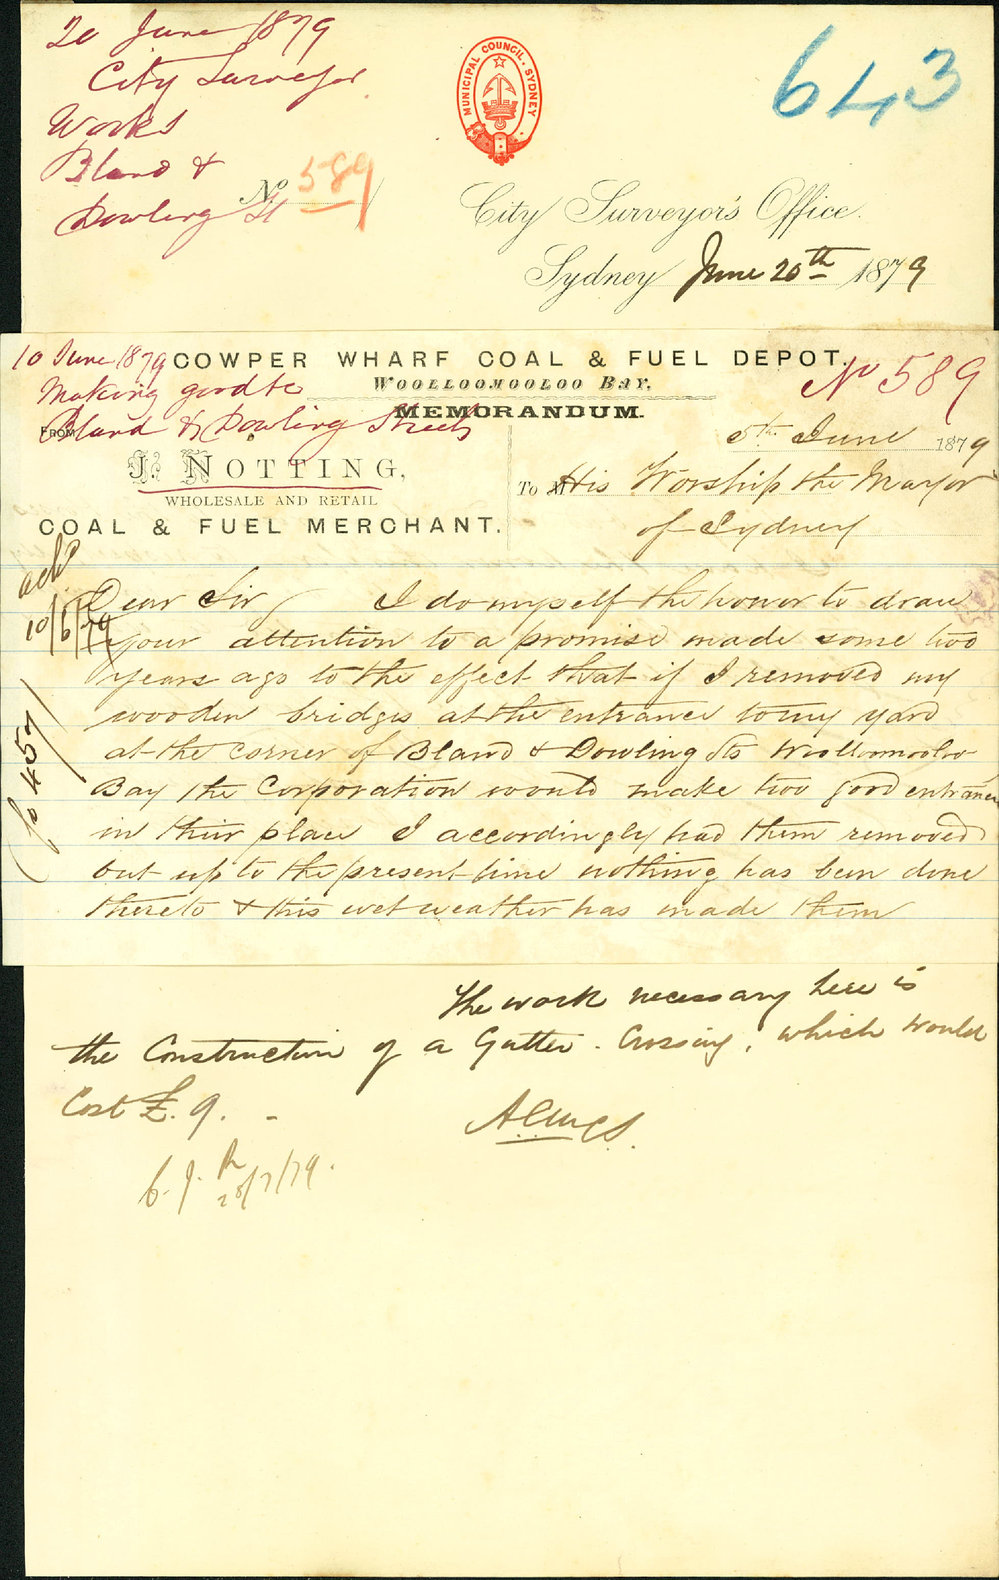 20 June 1879
City Surveyor
Works
Bland &
Dowling St
No 589
MUNICIPAL COUNCIL. SYDNEY
643
City Surveyor's Office.
Sydney June 20th 1879
10 June 1879
Making good &c
Bland & Dowling Streets
COWPER WHARF COAL & FUEL DEPOT.
WOOLLOOMOOLOO BAY.
MEMORANDUM.
No 589
FROM
J. NOTTING,
WHOLESALE AND RETAIL
COAL & FUEL MERCHANT.
5th June 1879
To His Worship the Mayor
of Sydney
ackd
10/6/79
fo 457
Dear Sir I do myself the honor to draw
your attention to a promise made some two
years ago to the effect that if I removed my
wooden bridges at the entrance to my yard
at the corner of Bland & Dowling Sts Woolloomooloo
Bay the Corporation would make two good entrances
in their place I accordingly had them removed
but up to the present time nothing has been done
thereto & this wet weather has made them
The work necessary here is
the Construction of a Gutter-Crossing, which would
Cost £.9.-
28/7/79.